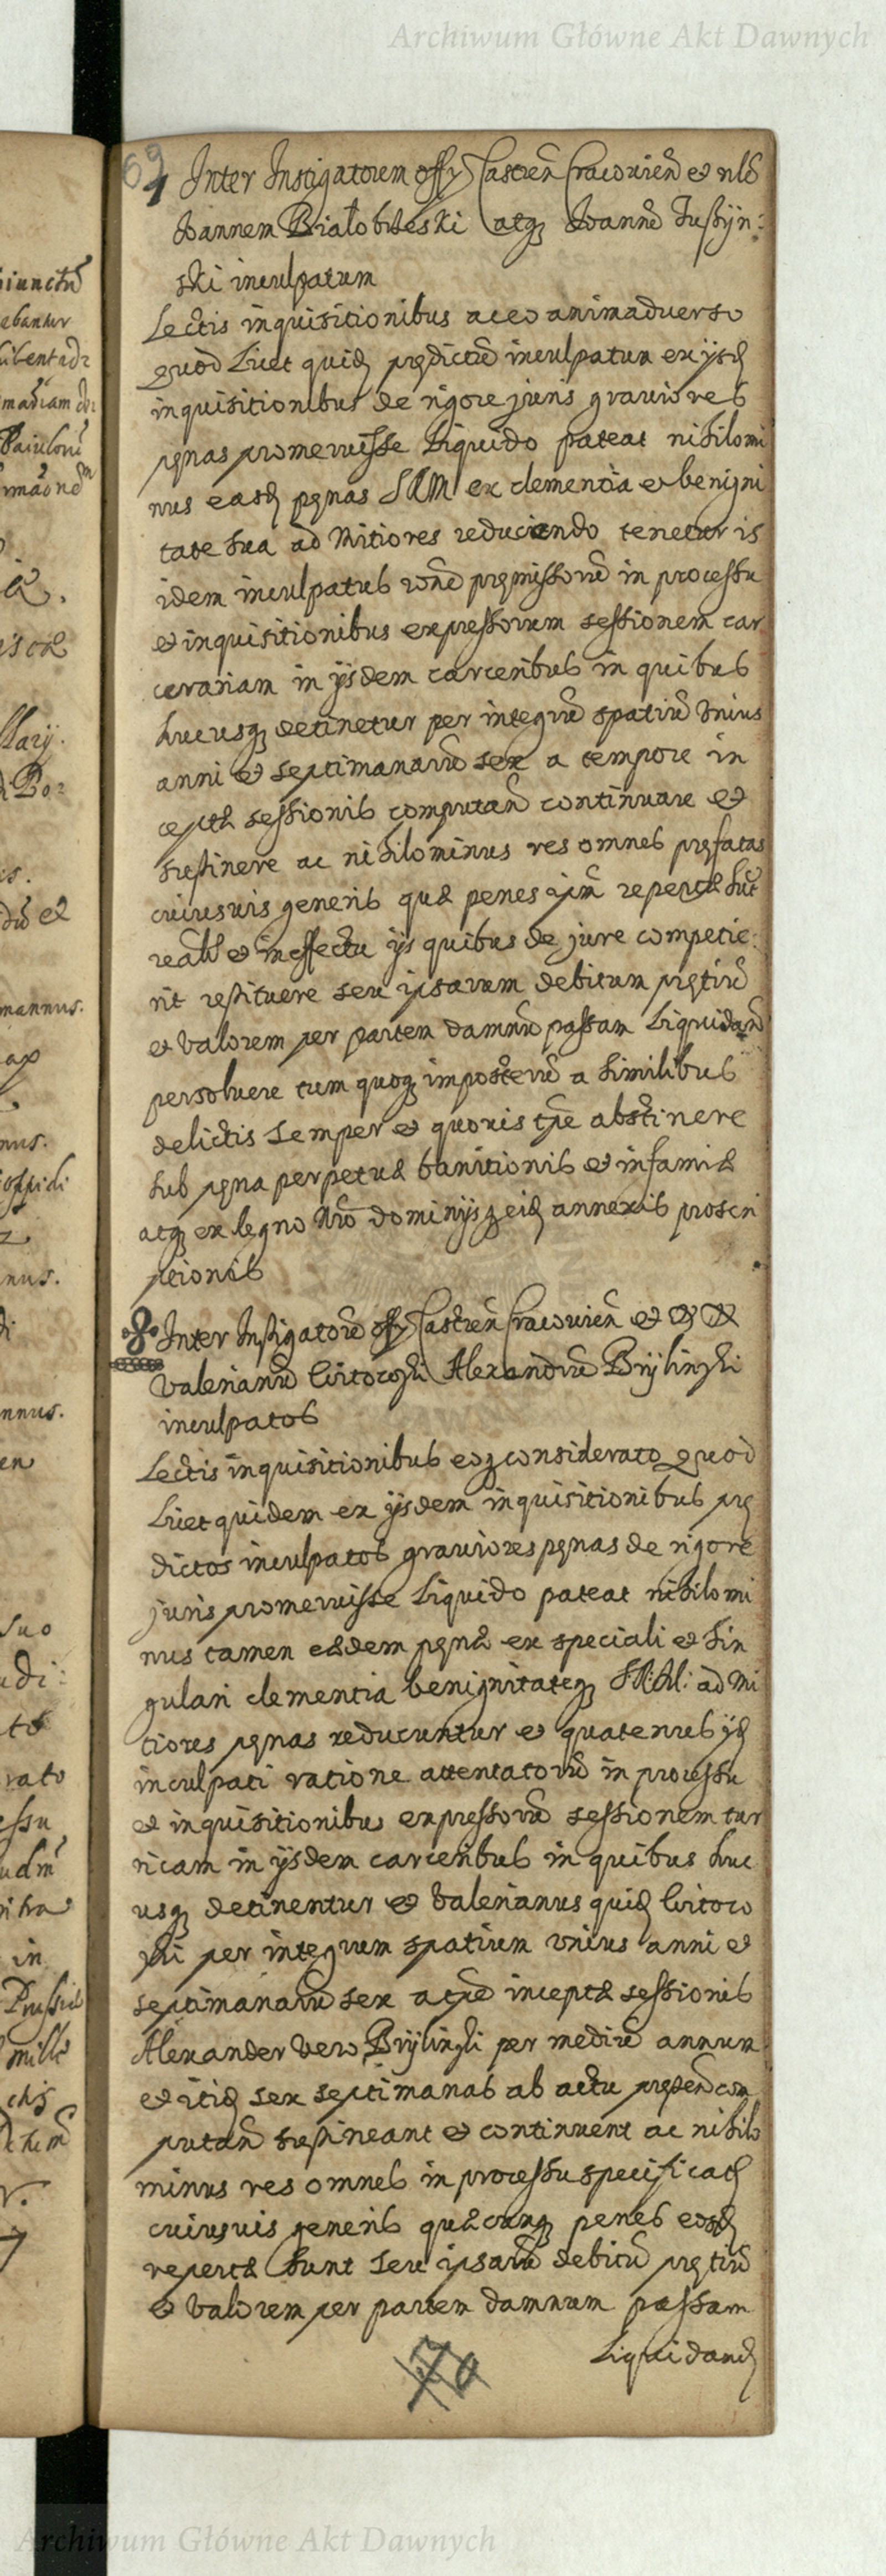 Archiwum Główne Akt Dawnych
69
1 Inter Instigatorem offy Castren Cracovien et nlē
Joannem Białobrzeski atq Joannē Justyn:
ski inculpatum
Lectis inquisitionibus ac eo animaduerso
quod Licet quid prędictū inculpatum ex ijsd
inquisitionibus de rigore juris grauiores
pęnas promeruisse Liquido pateat nihilomi
nus easd pęnas SRM ex clementia et benigni
tate sua ad Mitiores reducendo tenetur is
idem inculpatus rōne pręmissorū in processu
et inquisitionibus expressorum sessionem car
cerariam in ijsdem carceribus in quibus
hucusq detinetur per integrū spatiū Vnius
anni et septimanarū sex a tempore in
ceptæ sessionis computan continuare et
sustinere ac nihilominus res omnes pręfatas
cuiusuis generis quæ penes ipm repertæ sūt
realr et in effectu ijs quibus de jure competie:
rit restituere seu ipsarum debitum prętiū
et Valorem per partem damnū passam Liquidan
persoluere tum quoq imposterū a similibus
delictis semper et quouis tpe abstinere
sub pęna perpetuæ banitionis et infamiæ
atq ex Regno Nro dominijsq eid annexis proscri
ptionis
Inter Instigatorē offy Castren Cracovien et
Valerianū Alexandrū Brylinski
inculpatos
Lectis inquisitionibus eoq considerato quod
Licet quidem ex ijsdem inquisitionibus prę
dictos inculpatos grauiores pęnas de rigore
juris promeruisse Liquido pateat nihilomi
nus tamen eædem pęnæ ex speciali et sin
gulari clementia benignitateq SR:M: ad Mi
tiores pęnas reducuntur et quatenus ijd
inculpati ratione attentatorū in processu
et inquisitionibus expressorū sessionem tur
ricam in ijsdem carceribus in quibus huc
usq detinentur et Valerianus quid
ski per integrum spatium vnius anni et
septimanarū sex a tpe inceptæ sessionis
Alexander Vero Brylinski per mediū annum
et itid sex septimanas ab actu pręsen com
putan sustineant et continuent ac nihilo
minus res omnes in processu specificatas
cuiusuis generis quæcunq penes eosd
repertæ sunt seu ipsarū debitū prętiū
et Valorem per partem damnum passam
Liquidand
70
Archiwum Główne Akt Dawnych